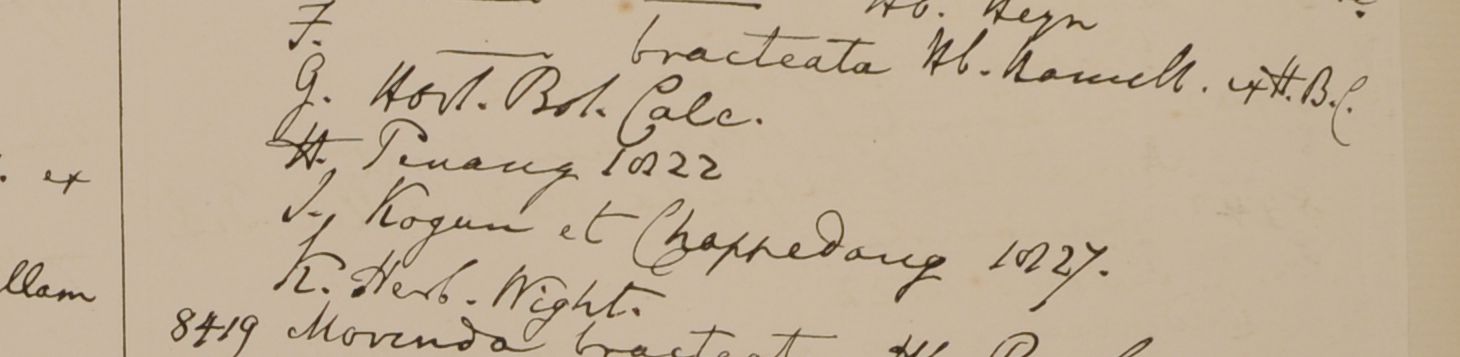 Hb. Heyn
F. —— bracteata Hb. Hamilt. ex H.B.C.
G. Hort. Bot. Calc.
H. Penang 1822
ex
I., Kogun et Chappedong 1827.
K. Herb. Wight.
llam
8419 Morinda bracteat Hb.